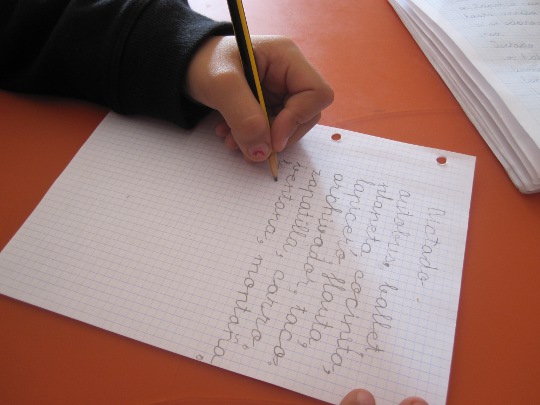 Dictado.
autobús, ballet
planeta, cocinita,
lapicero, flauta,
archivador, taco
zapatilla, carro
ventana, montaña